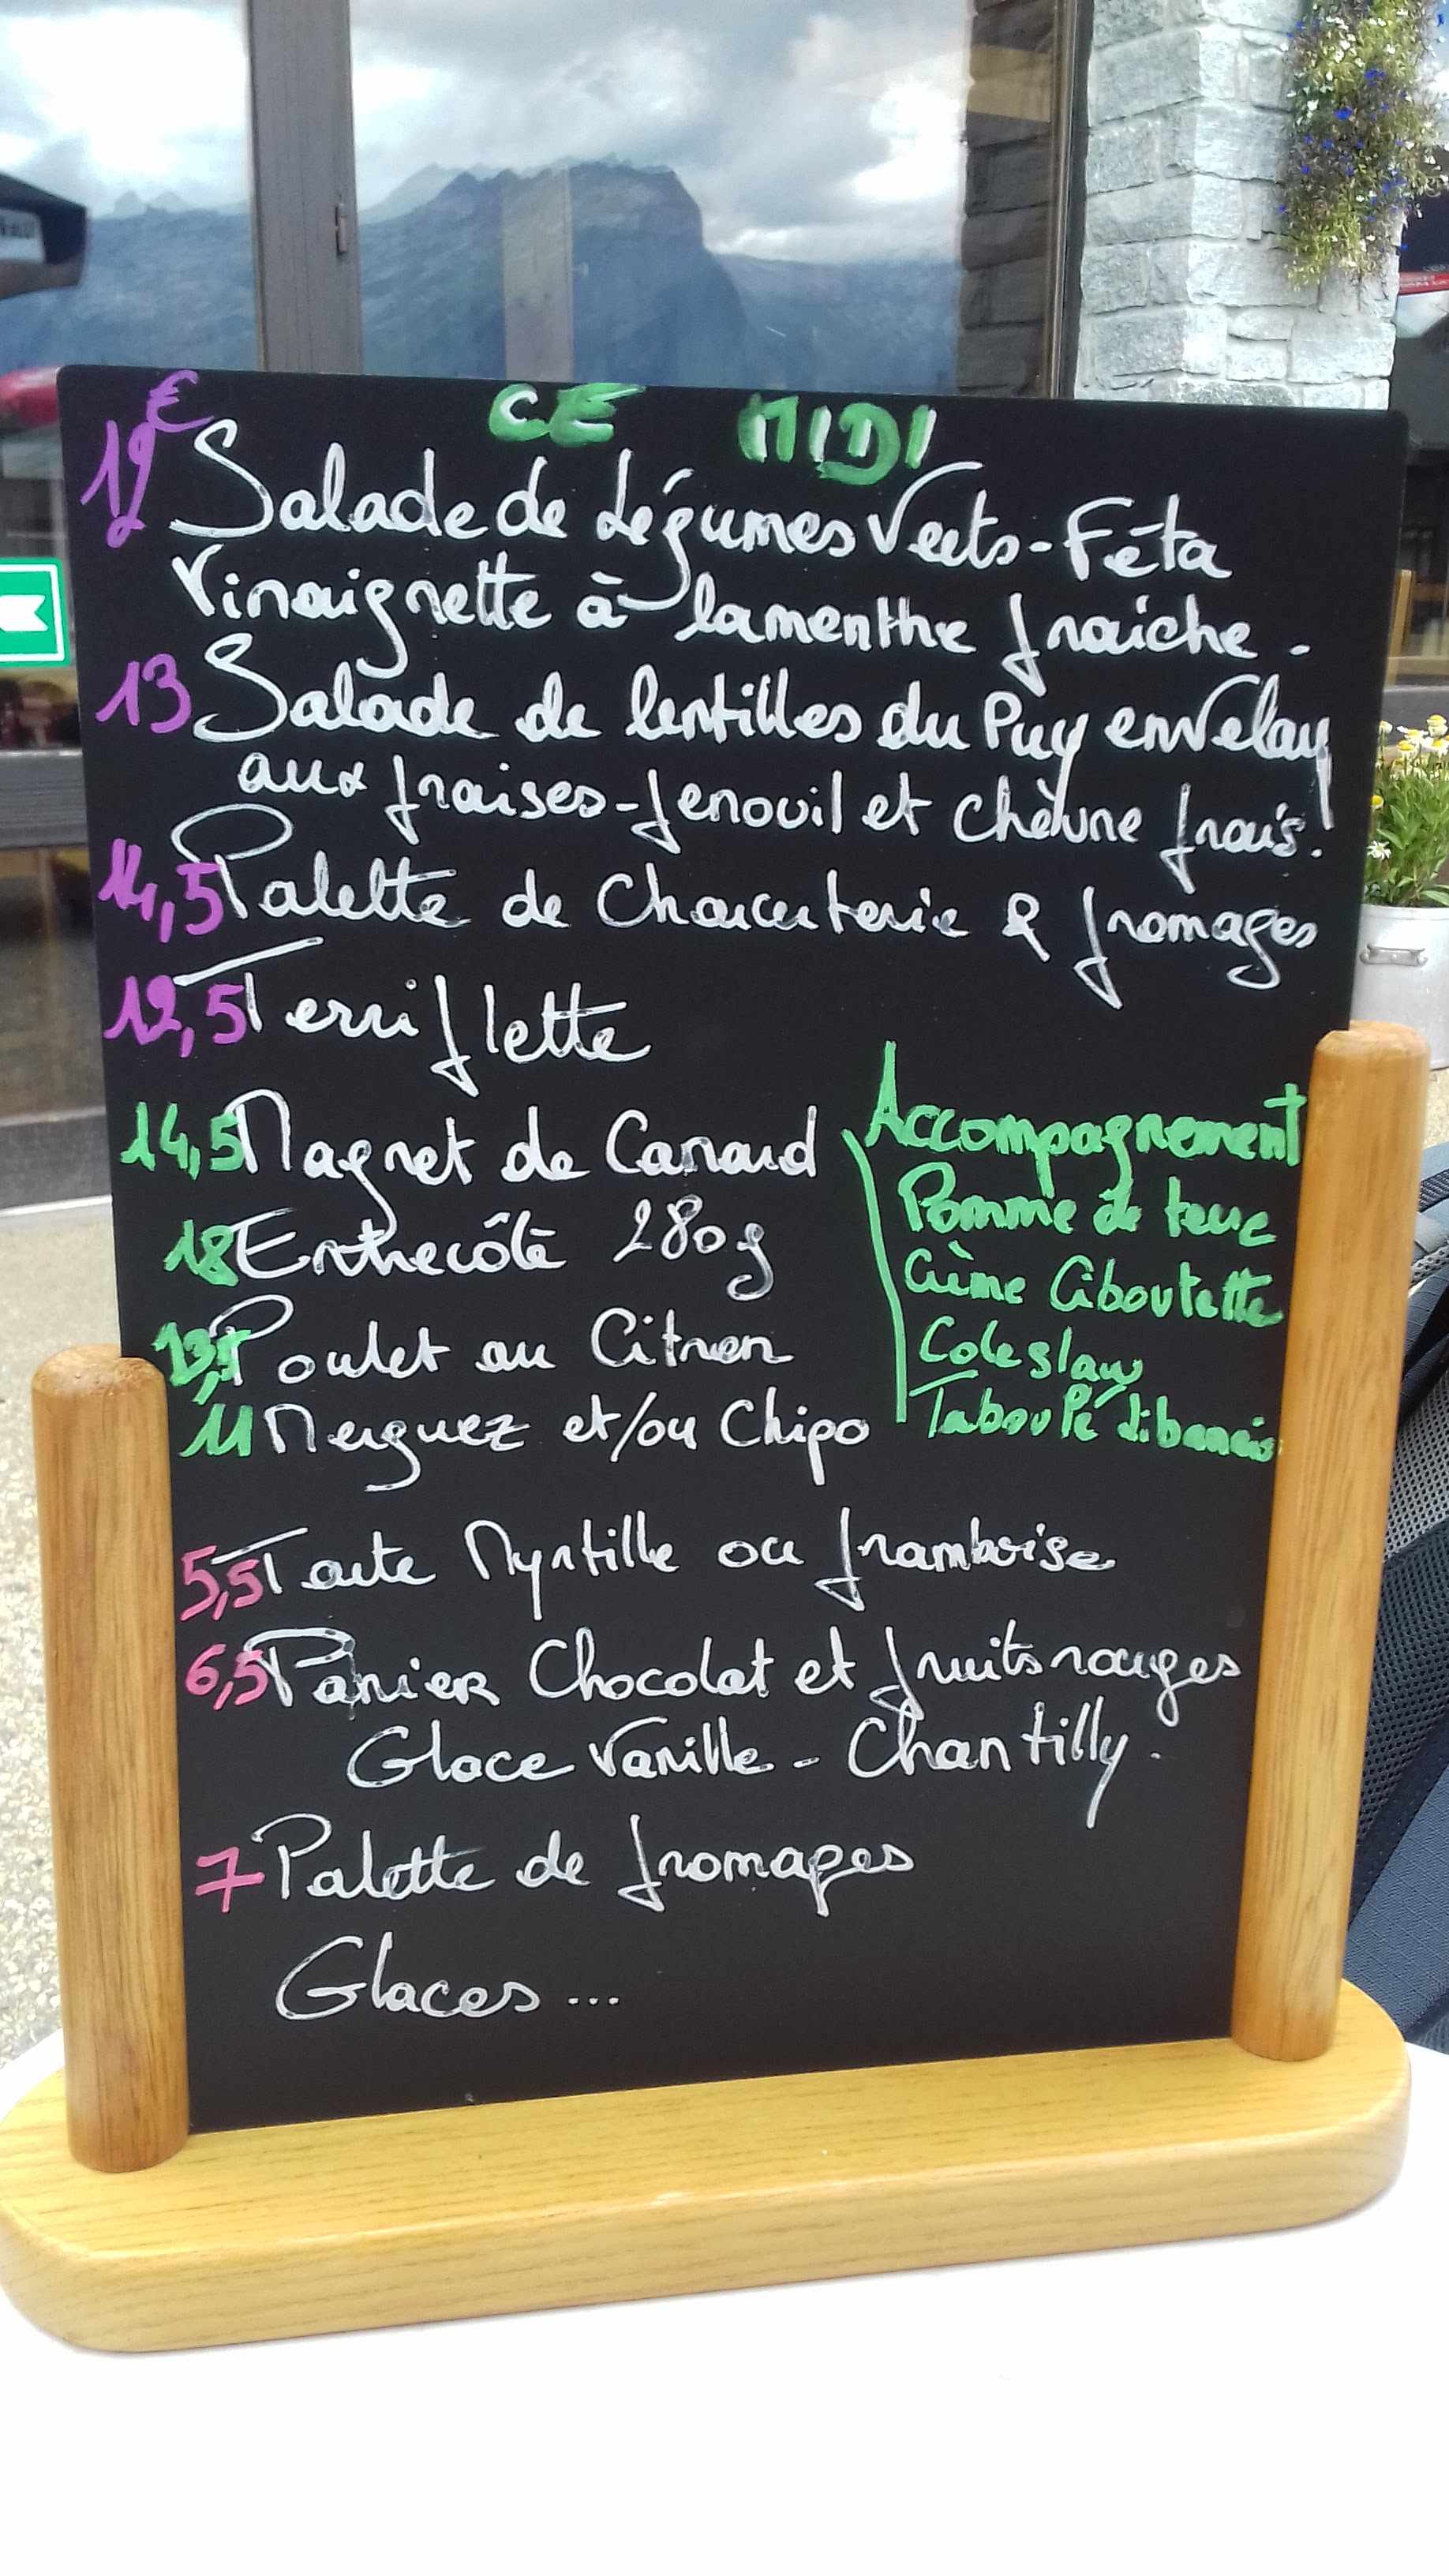 CE MIDI
12€ Salade de Légumes Verts - Féta
Vinaignette à la menthe fraiche -
13 Salade de lentilles du Puy en Velay
aux fraises - fenouil et chèvre frais!
14,5 Palette de Charcuterie & fromages
12,5 Terriflette
14,5 Magret de Canard
18 Entrecôte 280g
13,5 Poulet au Citron
11 Merguez et/ou Chipo
Accompagnement
Pomme de terre
Crème Ciboulette
Coleslaw
Taboulé libanais
5,5 Tarte Myrtille ou framboise
6,5 Panier Chocolat et fruits rouges
Glace Vanille - Chantilly.
7 Palette de fromages
Glaces ...